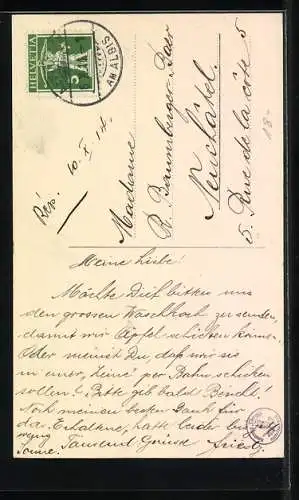 HELVETIA
AM ALBIS
Rép. 10. X. 14.
Madame
R. Baumberger-Baer
Neuchâtel.
5. Rue de la côte 5
18.-
Meine Liebe!
Möchte Dich bitten uns
den grossen Waschkoch zu senden,
damit wir Äpfel schicken können.
Oder meinst Du, daß wir sie
in einer "Zeine" per Bahn schicken
sollen? Bitte geb bald Bericht!
Noch meinen besten Dank für
das Erhaltene, hatte leider
wenig Sonne. Tausend Grüsse